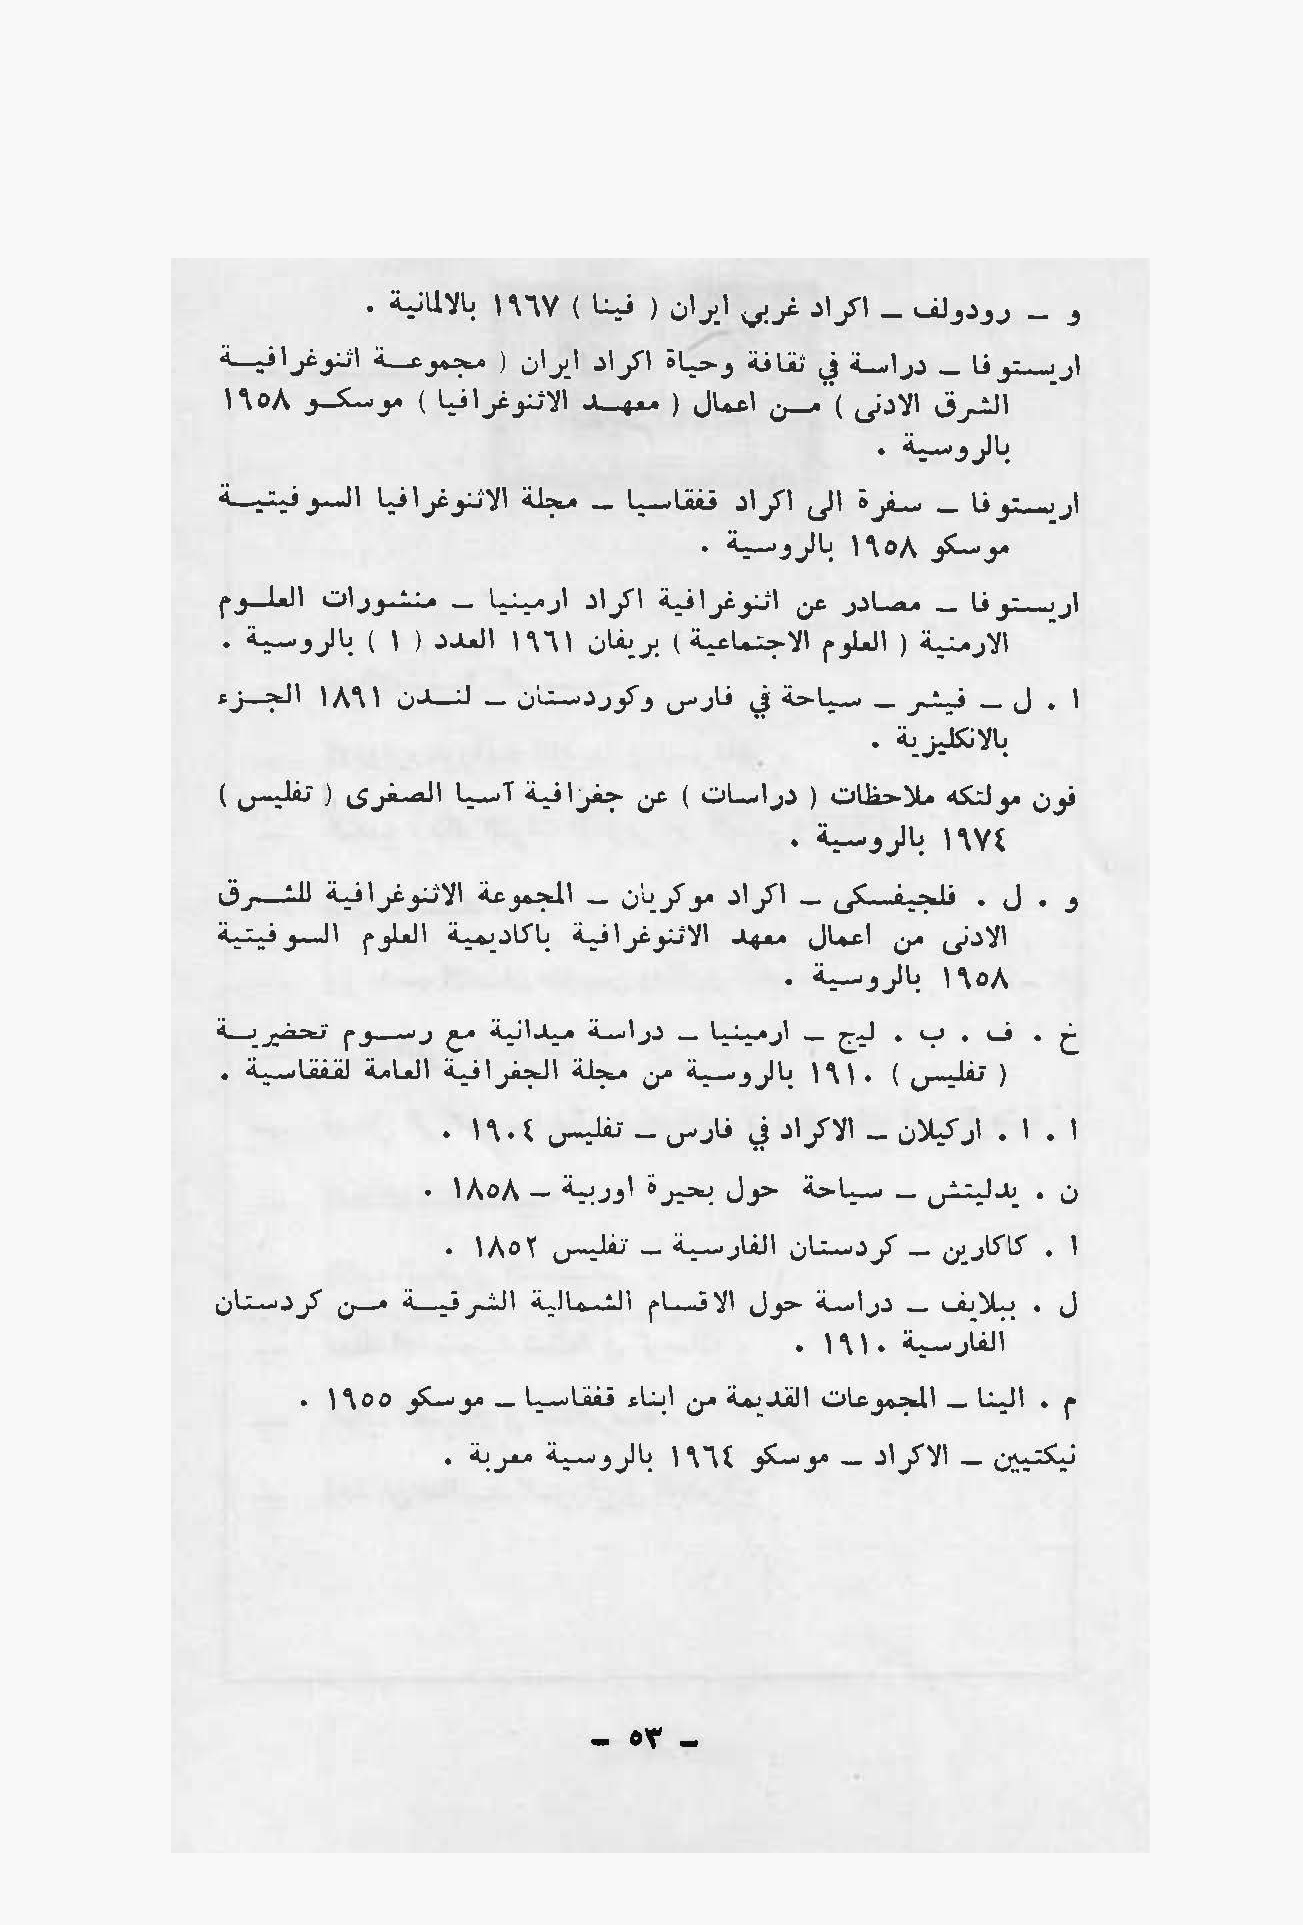 و – رودولف – اكراد غربي ايران ( فينا ) ١٩٦٧ بالالمانية .
اريستوفا – دراسة في ثقافة وحياة اكراد ايران ( مجموعة اثنوغرافية
الشرق الادنى ) من اعمال ( معهد الاثنوغرافيا ) موسكو ١٩٥٨
بالروسية .
اريستوفا – سفرة الى اكراد قفقاسيا – مجلة الاثنوغرافيا السوفيتية
موسكو ١٩٥٨ بالروسية .
اريستوفا – مصادر عن اثنوغرافية اكراد ارمينيا – منشورات العلوم
الارمنية ( العلوم الاجتماعية ) بريفان ١٩٦١ العدد ( ١ ) بالروسية .
ا . ل – فيشر – سياحة في فارس وكوردستان – لندن ١٨٩١ الجزء
بالانكليزية .
فون مولتكه ملاحظات ( دراسات ) عن جغرافية آسيا الصغرى ( تفليس )
١٩٧٤ بالروسية .
و . ل . فلجيفسكى – اكراد موكريان – المجموعة الاثنوغرافية للشرق
الادنى من اعمال معهد الاثنوغرافية باكاديمية العلوم السوفيتية
١٩٥٨ بالروسية .
خ . ف . ب . ليج – ارمينيا – دراسة ميدانية مع رسوم تحضيرية
( تفليس ) ١٩١٠ بالروسية من مجلة الجغرافية العامة لقفقاسية .
ا . ا . اركيلان – الاكراد في فارس – تفليس ١٩٠٤ .
ن . يدليتش – سياحة حول بحيرة اوربية – ١٨٥٨ .
ا . كاكارين – كردستان الفارسية – تفليس ١٨٥٢ .
ل . ببلايف – دراسة حول الاقسام الشمالية الشرقية من كردستان
الفارسية ١٩١٠ .
م . الينا – المجموعات القديمة من ابناء قفقاسيا – موسكو ١٩٥٥ .
نيكتيين – الاكراد – موسكو ١٩٦٤ بالروسية معربة .
– ٥٣ –